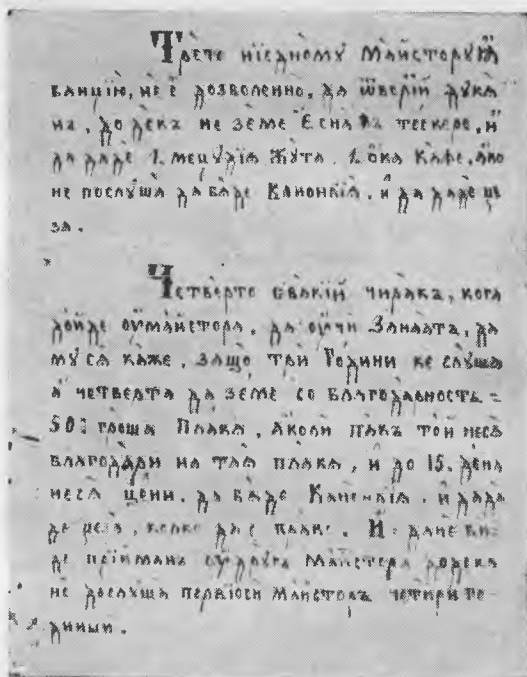 Трето нїедному Маисторꙋ Ѩ
ванцїю, не е дозволенно, да ѿверїй дꙋка
нъ, до декъ не земе Еснафъ тескере, и
да даде 1. меџꙋдїа жꙋта. 1. Ока Кафе, ако
не послꙋша да баде Канонвїа. и да даде це
за.
Четверто свакїй чиракъ, кога
дойде оу маистора, да оучи Занаатъ, да
мꙋ са каже, защо трй Години ке слꙋша
а четверта да земе со благодарность =
50: гроша Плака, Аколи пакъ той неса
благодари на таа плака, и до 15. дена
неса цени. да баде Канонвїа. и дада
де цеза, колко да е плаке. И: дане би
де прїиманъ оу дрꙋгъ Маистора додека
не дослꙋша первїоси Маисторъ четири го
дины.